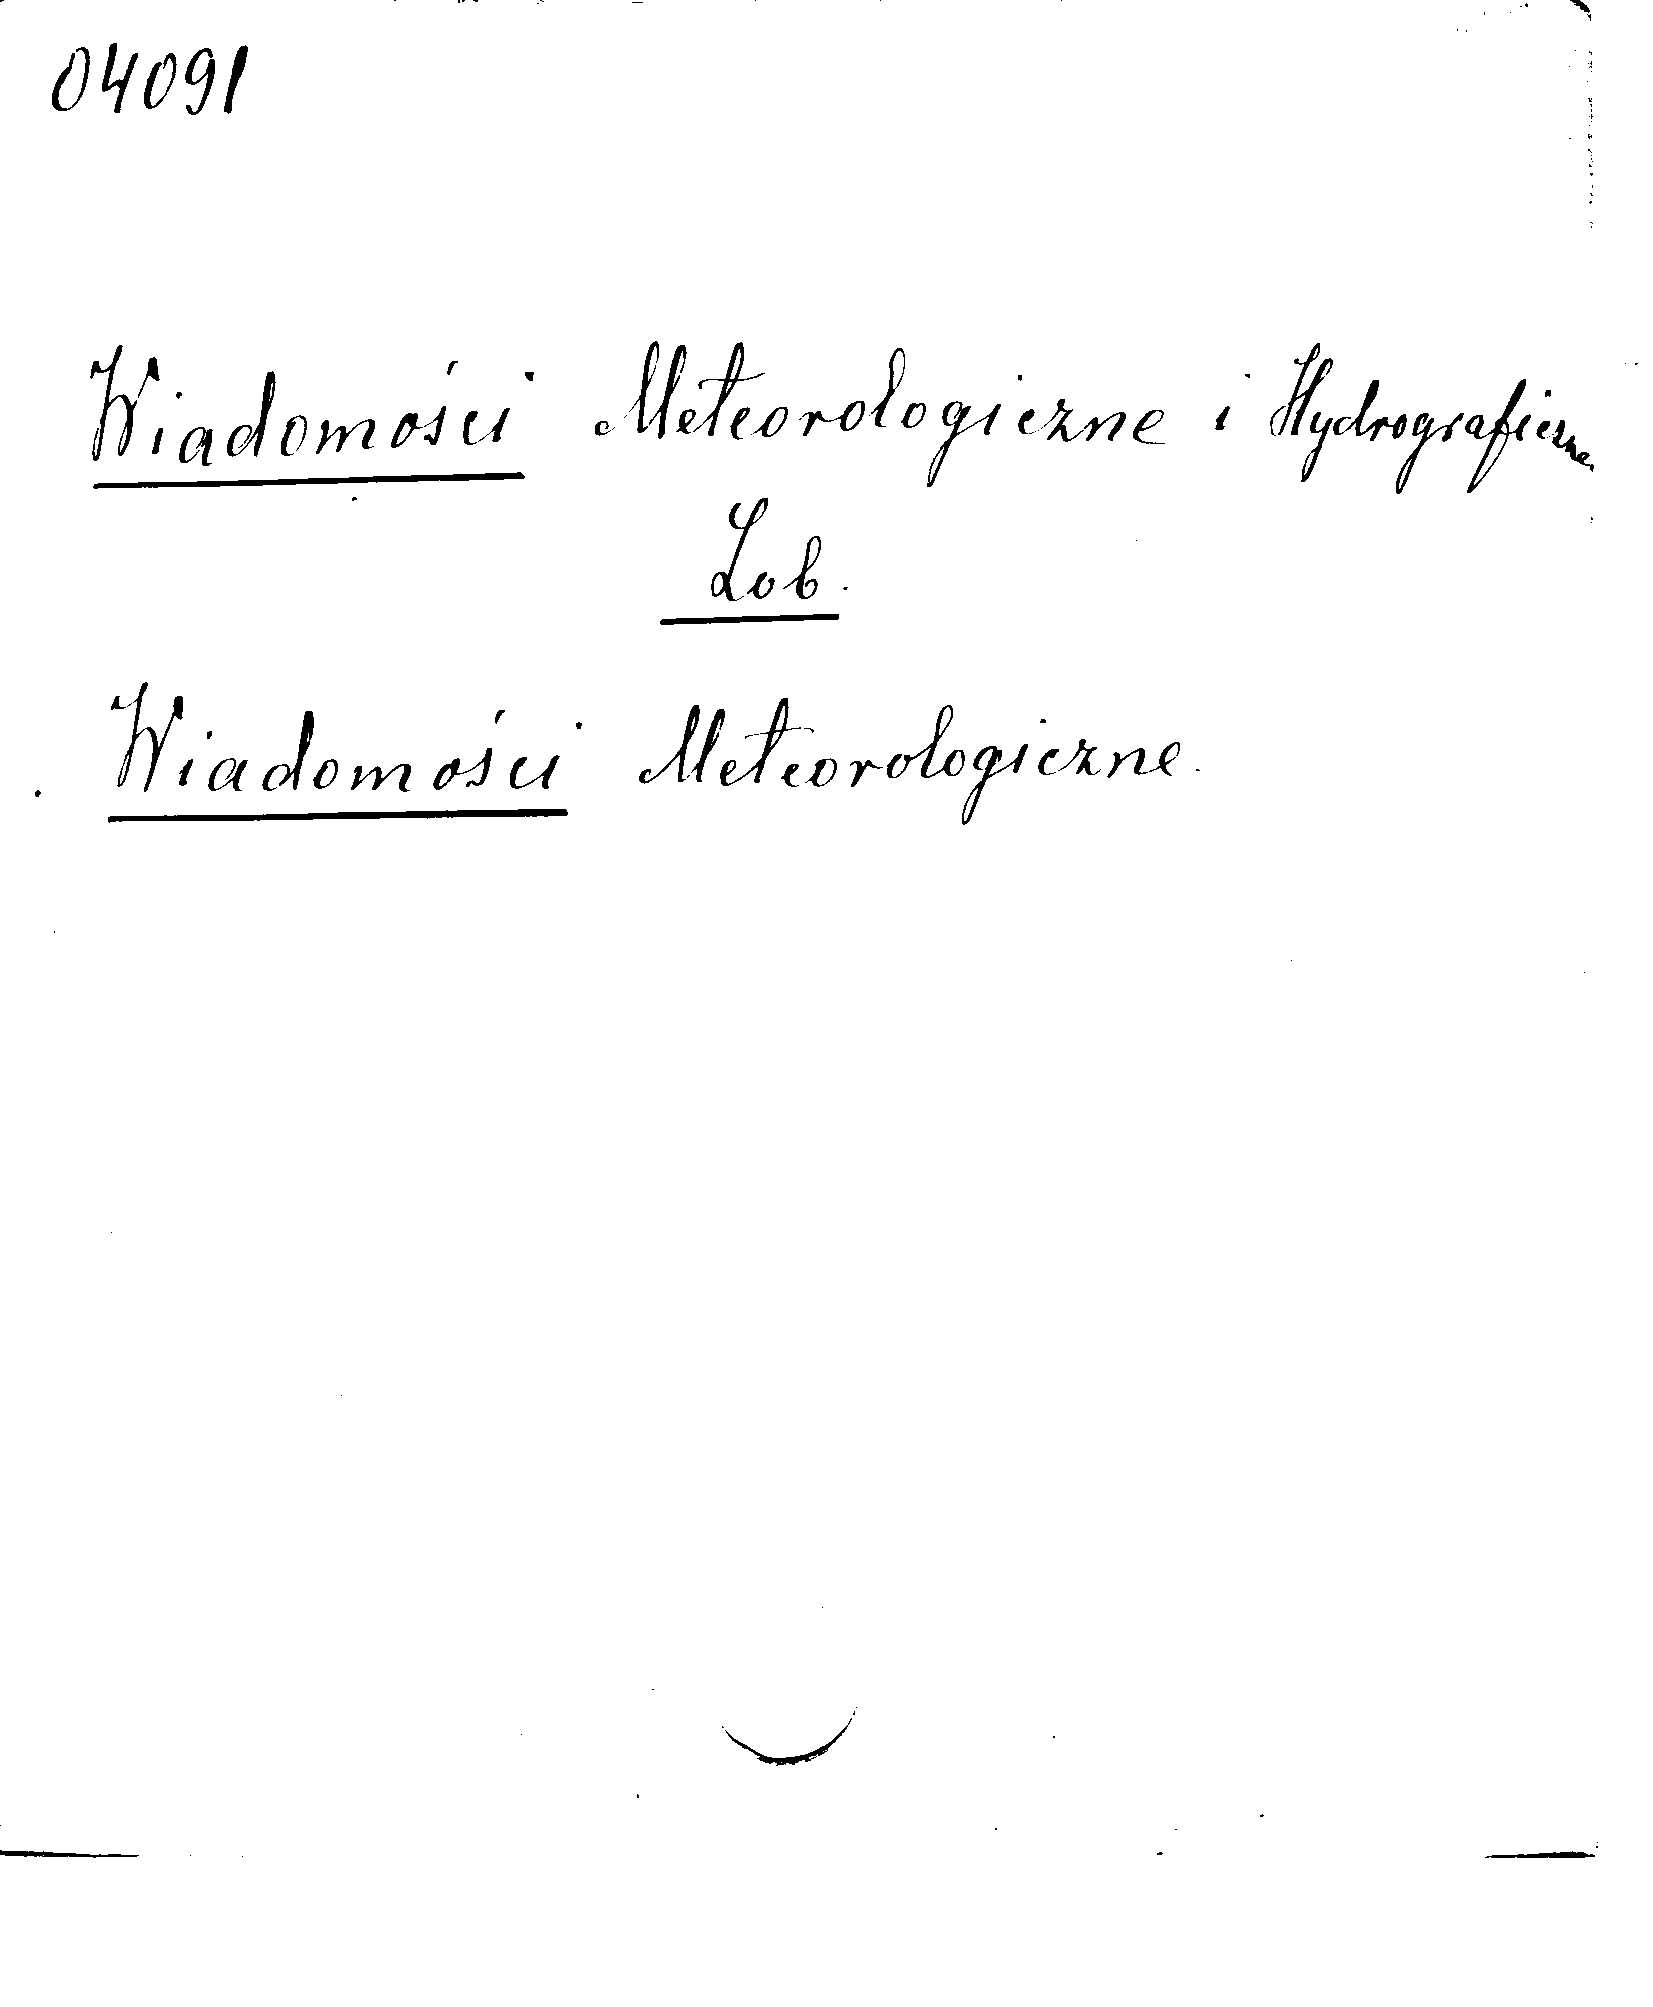 04091
Wiadomości Meteorologiczne i Hydrograficzne
Zob.
Wiadomości Meteorologiczne.